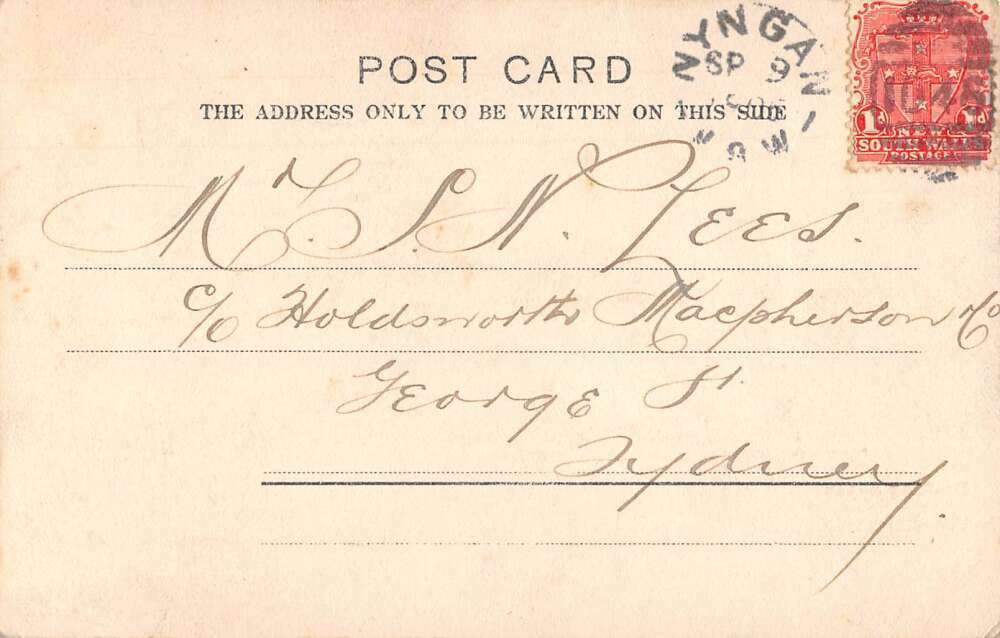 POST CARD
THE ADDRESS ONLY TO BE WRITTEN ON THIS SIDE
NYNGAN
SP 9
N.S.W
1d NEW 1d
SOUTH WALES
POSTAGE
Mr. S. N. Lees.
c/o Holdsworth Macpherson & Co
George St.
Sydney